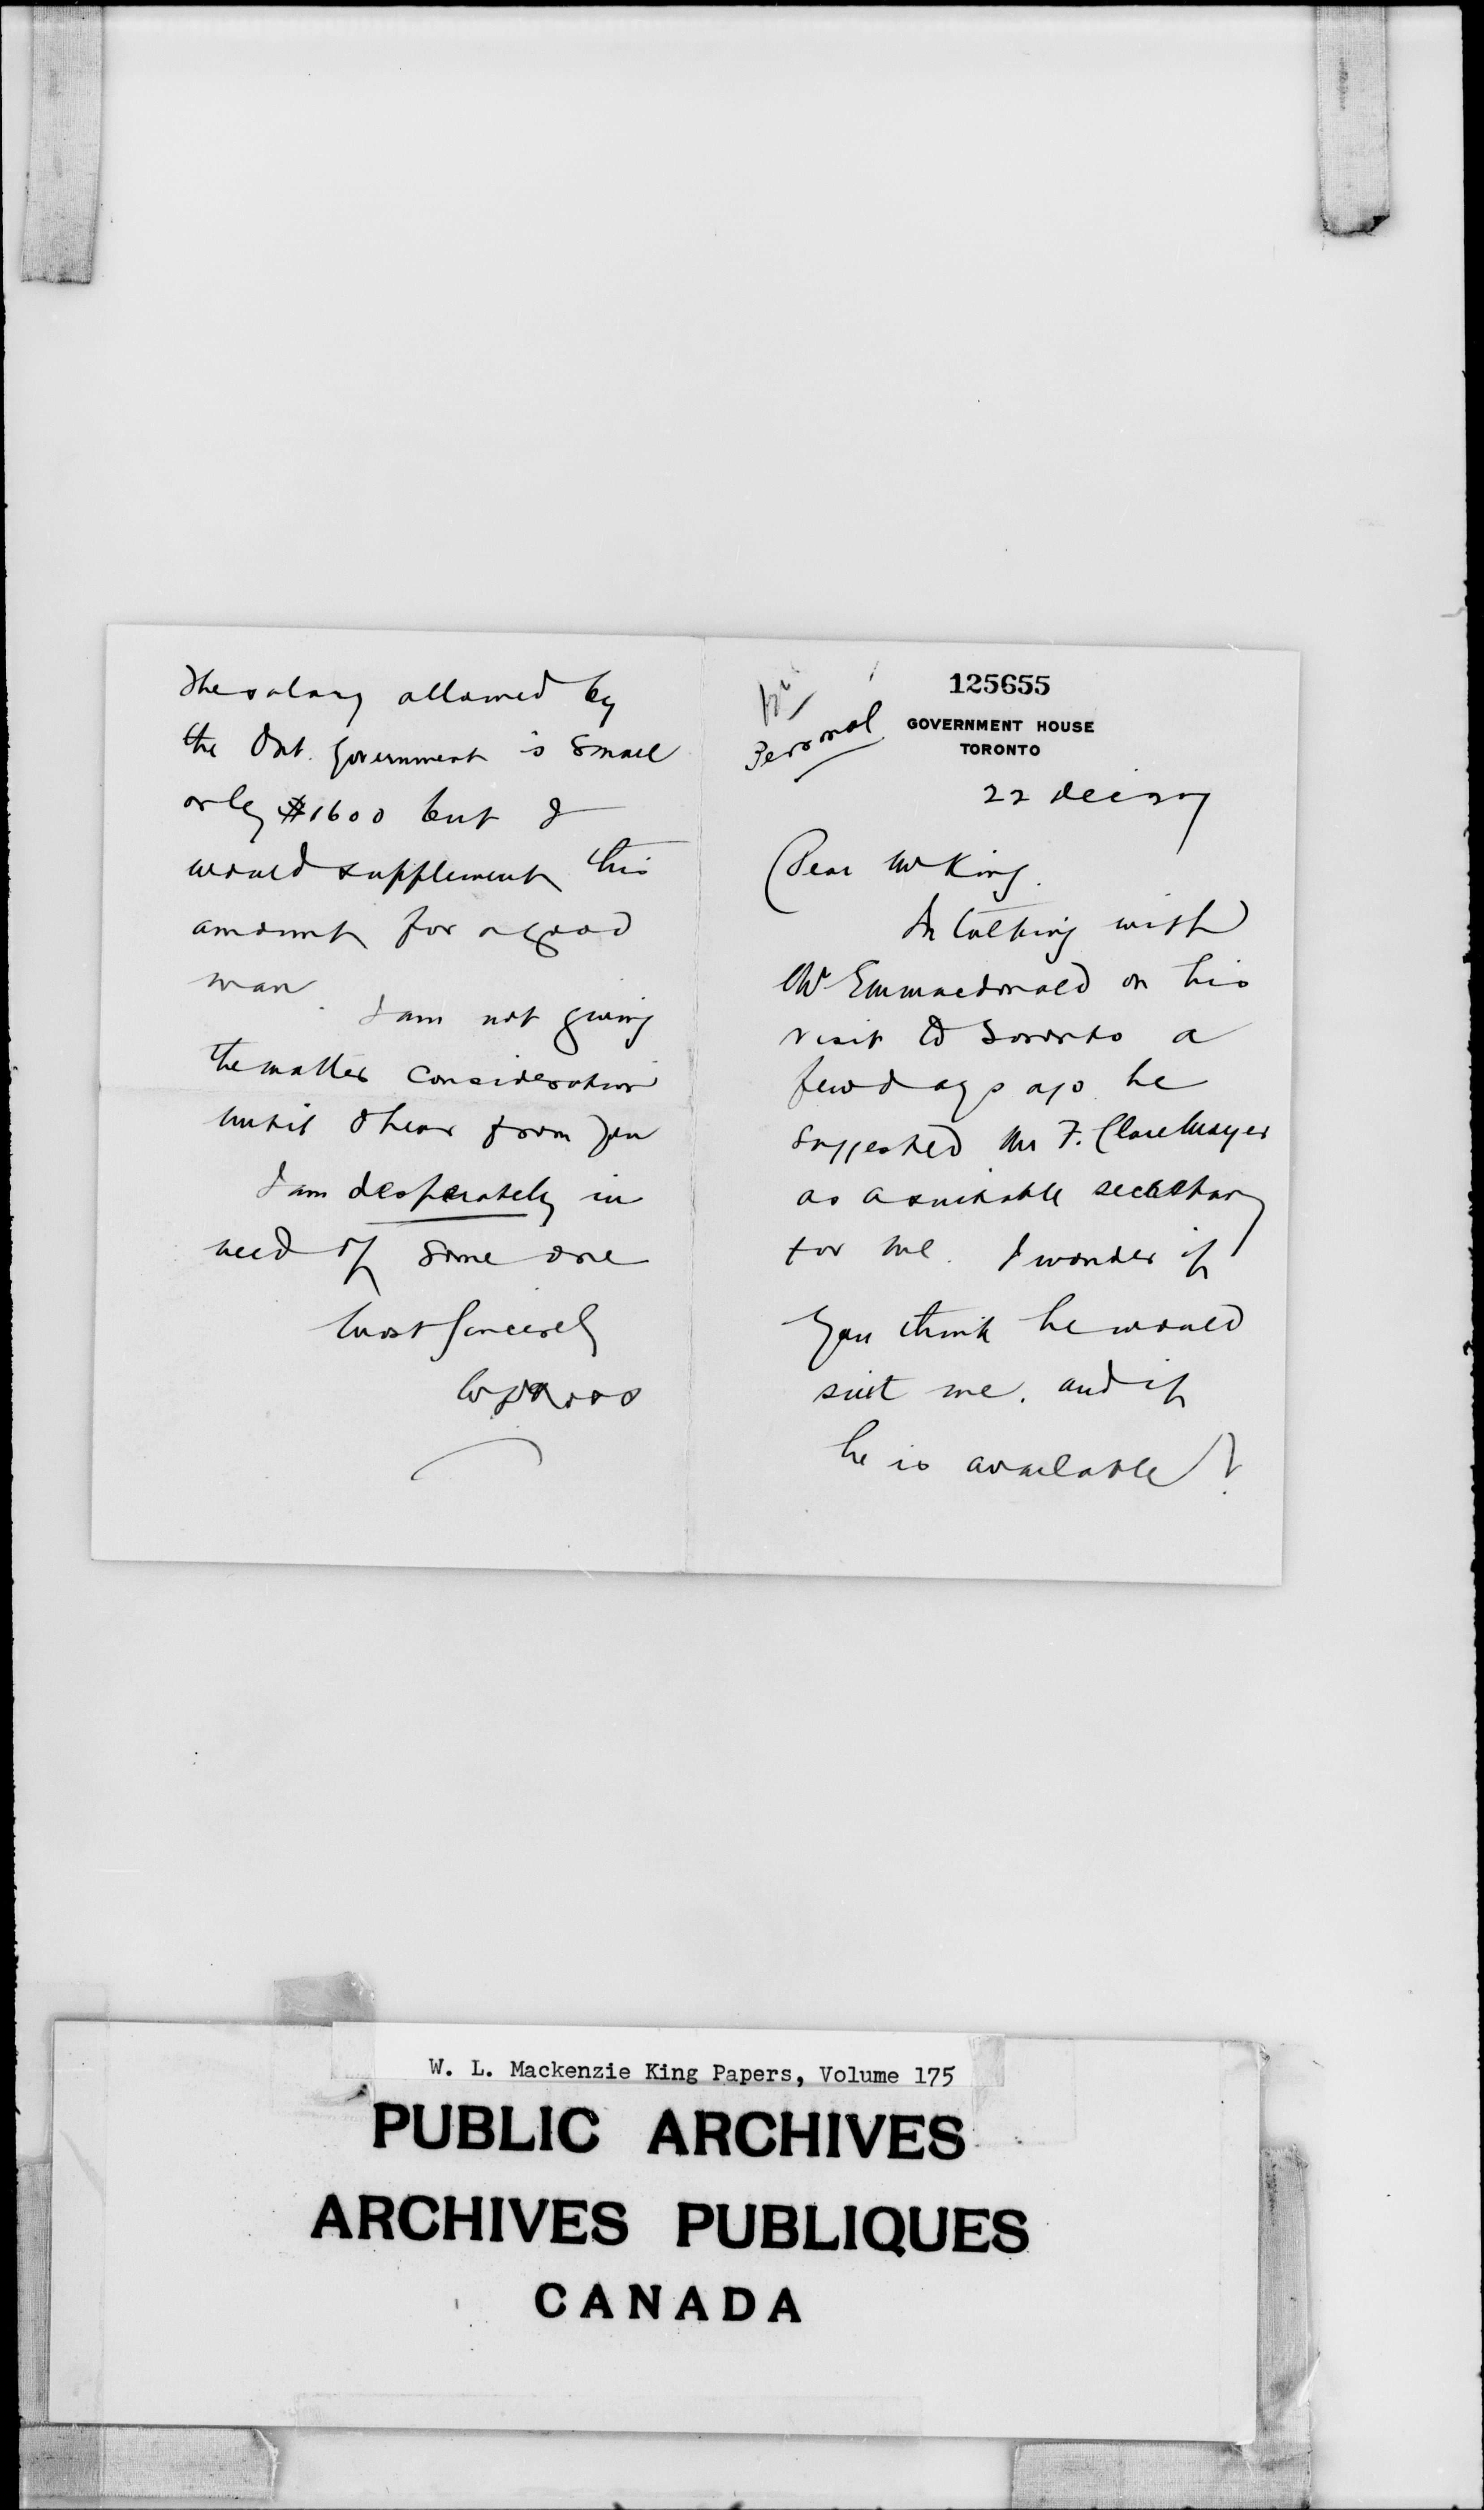 125655
Personal
GOVERNMENT HOUSE
TORONTO
22 Dec 27
Dear Mr King.
In talking with
Mr E.M. Macdonald on his
visit to Toronto a
few days ago he
suggested Mr F. Clare Moyer
as a suitable secretary
for me. I wonder if
you think he would
suit me. and if
he is available?
The salary allowed by
the Ont. Government is small
only $1600 but I
would supplement this
amount for a good
man.
I am not giving
the matter consideration
until I hear from you
I am desperately in
need of some one
Most Sincerely
W D Ross
W. L. Mackenzie King Papers, Volume 175
PUBLIC ARCHIVES
ARCHIVES PUBLIQUES
CANADA